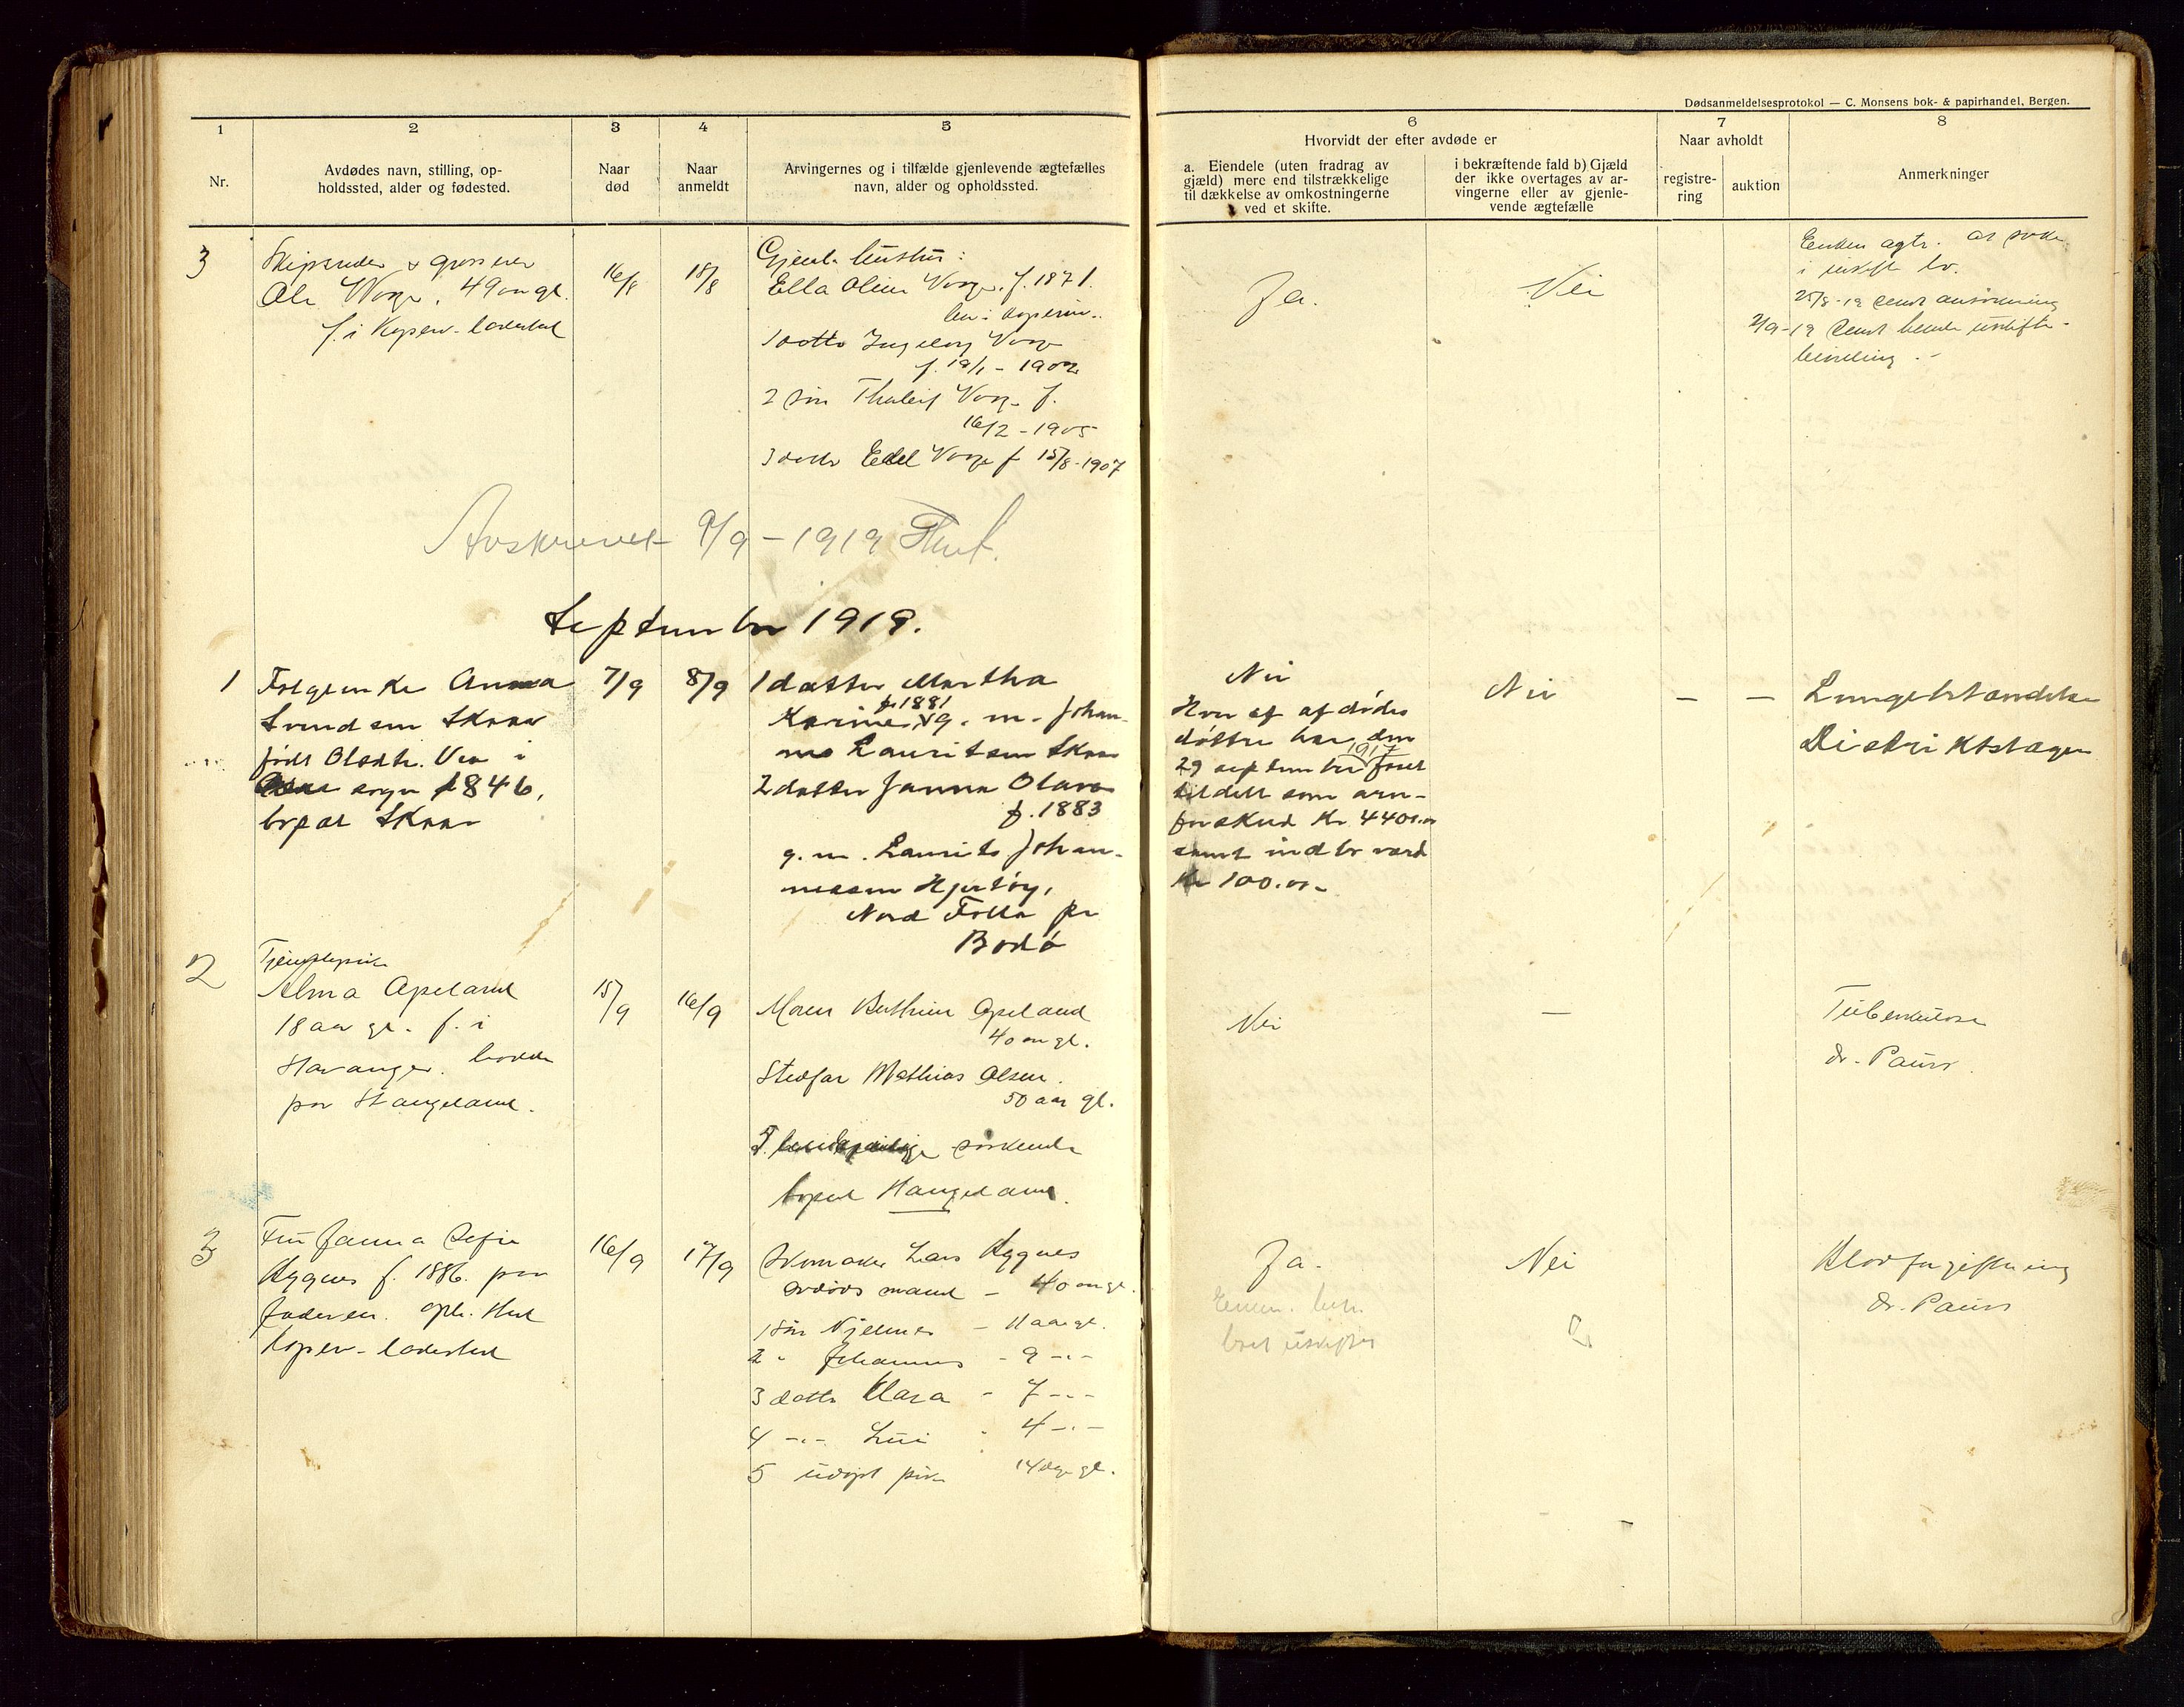 Dødsanmeldelsesprotokol — C. Monsens bok- & papirhandel, Bergen.
1
Nr.
2
Avdødes navn, stilling, op-
holdssted, alder og fødested.
3
Naar
død
4
Naar
anmeldt
5
Arvingernes og i tilfælde gjenlevende ægtefælles
navn, alder og opholdssted.
6
Hvorvidt der efter avdøde er
a. Eiendele (uten fradrag av
gjæld) mere end tilstrækkelige
til dækkelse av omkostningerne
ved et skifte.
i bekræftende fald b) Gjæld
der ikke overtages av ar-
vingerne eller av gjenle-
vende ægtefælle
7
Naar avholdt
registre-
ring
auktion
8
Anmerkninger
3
Skipsreder & grosserer
Ole Vorge, 49 aar gl.
f. i Koperv. ladested
16/8
18/8
Gjenl. hustru:
Ella Oline f. 1871.
1 datter Ingeborg
f. 19/1 - 1902
2 søn Thuleif f.
16/2 - 1905
3 datter Edel f 15/8-1907
Ja.
Nei
Enken agtr. at søke
i uskifte
25/8-19 sendt ansøkning
2/9-19 sendt uskifte-
bevilling.
Avskrevet 9/9 - 1919
September 1919.
1
Folgeenke Anna
Svendsen Skaar
født Olsdtr. Vea i
sogn 1846,
bopæl Skaar
7/9
8/9
1 datter Martha
f. 1881
Karine, g. m. Johan-
nes Lauritsen Skaar
2 datter Janna Olava
f. 1883
g. m. Laurits Johan-
nessen Hjertøy,
Nord Folla pr
Bodø
Nei
Hver af afdødes
døttre har den
29 september 1917 faaet
tildelt som arve-
forskud Kr 4400.00
samt indbo værd
Kr 100.00
Nei
— —
Lungebetændelse
Distriktslægen
2
Tjenestepike
Alma Apeland
18 aar gl. f. i
Stavanger. bodde
paa Stangeland.
15/9
16/9
Moren Berthine Apeland
40 aar gl.
Stedfar Mathias Olsen.
50 aar gl.
søskende
bopæl Stangeland.
Nei
—
Tuberkulose
dr. Pauss
3
Fru Janna Sofie
Hygnes f. 1886. paa
Jæderen.
Koperv. ladested
16/9
17/9
Skomaker Lars Hygnes
avdødes mand - 40 aar gl.
1 søn - 11 aar gl.
2 " Johannes - 9 -"-
3 datter Klara - 7 -"-
4 -"- - 4 -"-
5 udøpt pike 14 dage gl.
Ja.
Nei
Blodforgiftning
dr. Pauss